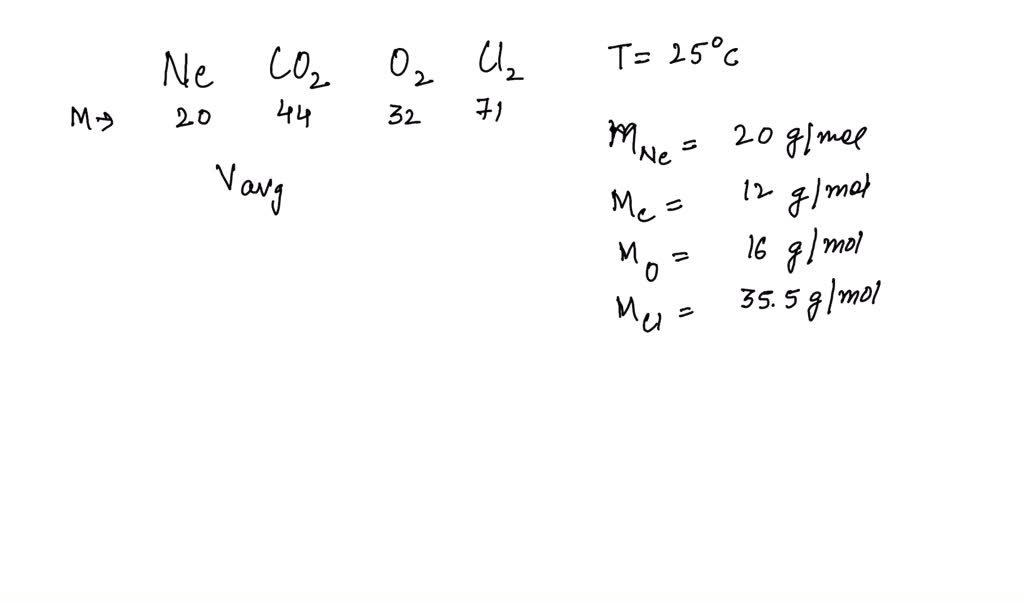 Ne CO₂ O₂ Cl₂
M→ 20 44 32 71
Vavg
T = 25°C
M_Ne = 20 g/mol
M_C = 12 g/mol
M_O = 16 g/mol
M_Cl = 35.5 g/mol